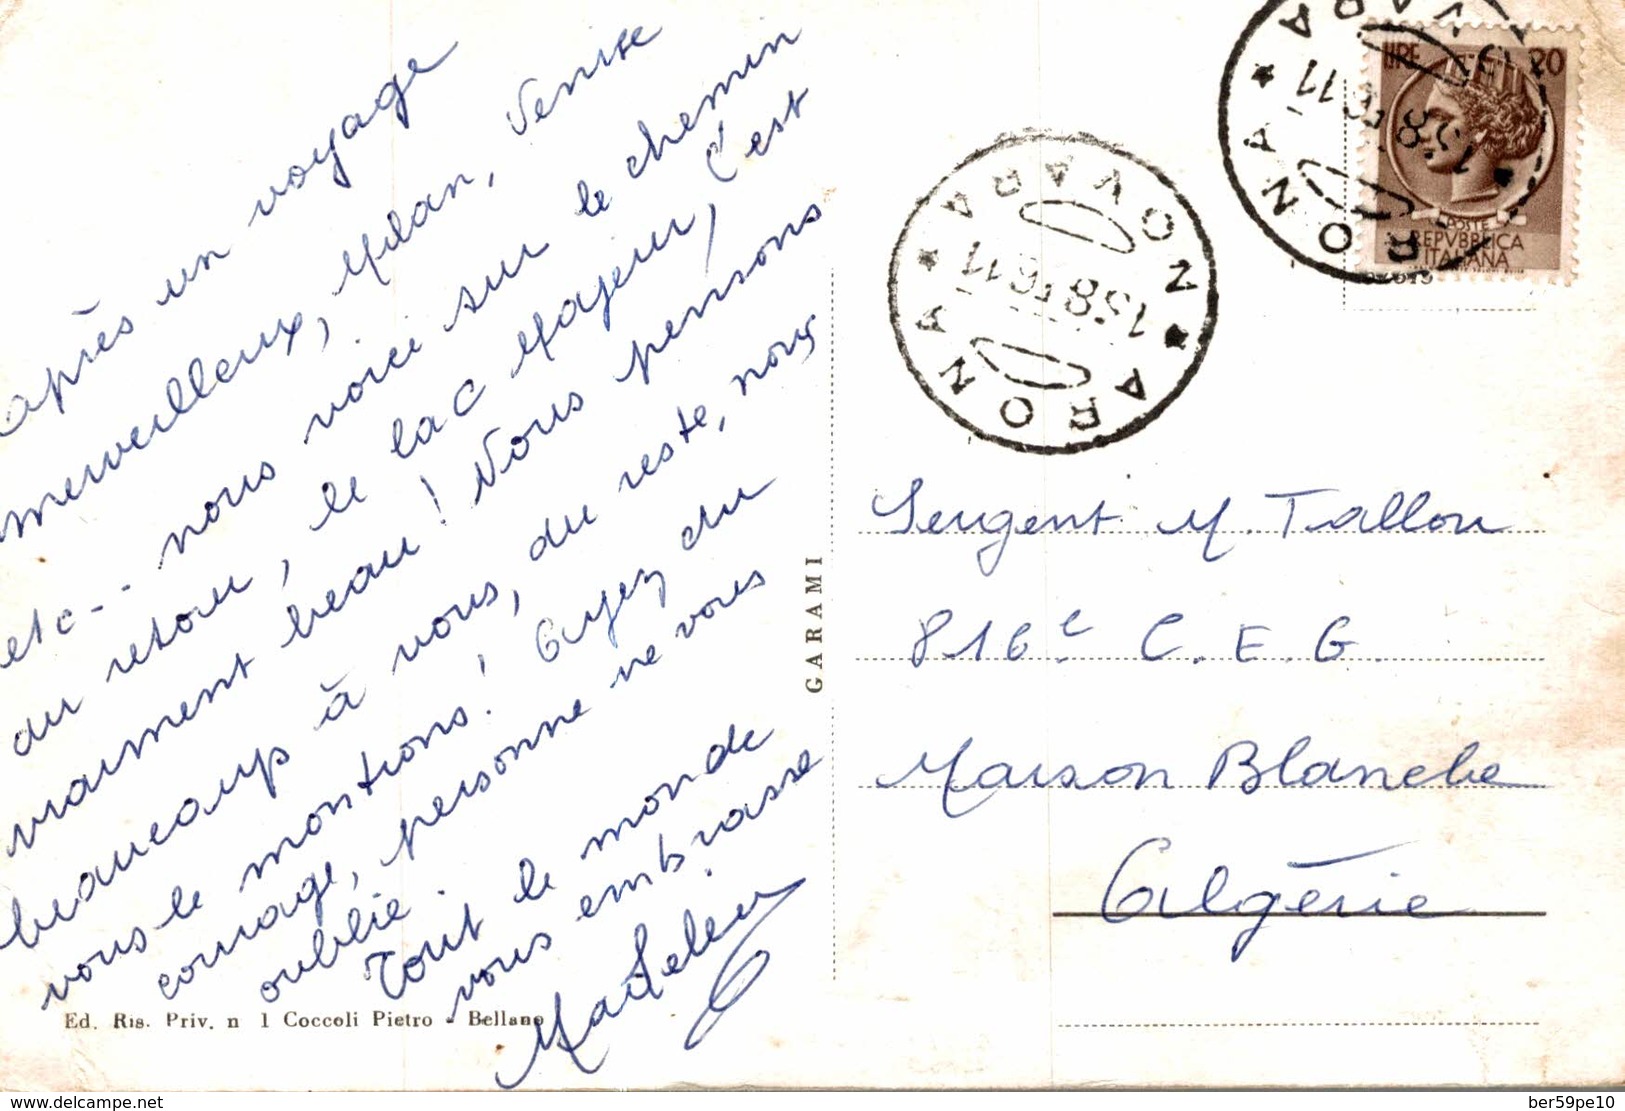 après un voyage
merveilleux, Milan, Venise
etc... nous voici sur le chemin
du retour, le lac Majeur, c'est
vraiment beau! Nous pensons
beaucoup à vous, du reste, nous
vous le montrons! Ayez du
courage, personne ne vous
oublie.
Tout le monde
vous embrasse
Ed. Ris. Priv. n 1 Coccoli Pietro - Bellano
GARAMI
LIRE 20
POSTE
REPVBBLICA
ITALIANA
* ARONA * NOVARA
* ARONA * NOVARA
Sergent M. Tallon
816e C. E. G.
Maison Blanche
Algérie
www.delcampe.net
ber59pe10